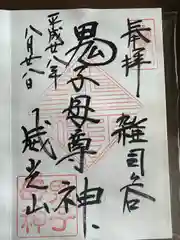 奉拝
雑司谷
鬼子母尊神
平成廿八年
八月廿八日
威光山